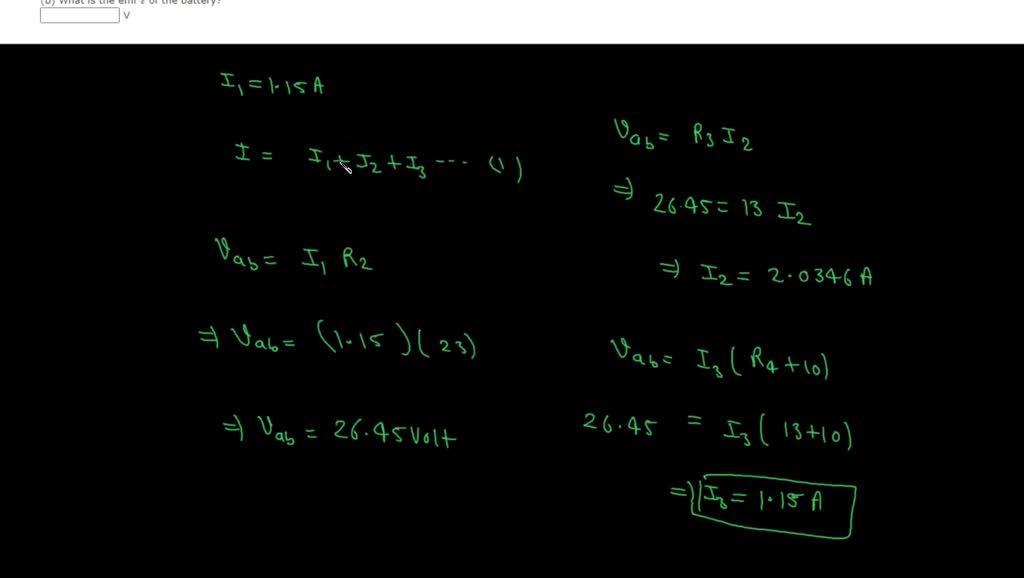 (b) What is the emf ε of the battery?
V
I₁ = 1.15 A
I = I₁ + I₂ + I₃ --- (1)
Vab = I₁ R₂
⇒ Vab = (1.15) (23)
⇒ Vab = 26.45 Volt
Vab = R₃ I₂
⇒ 26.45 = 13 I₂
⇒ I₂ = 2.0346 A
Vab = I₃ (R₄ + 10)
26.45 = I₃ (13+10)
⇒ I₃ = 1.15 A